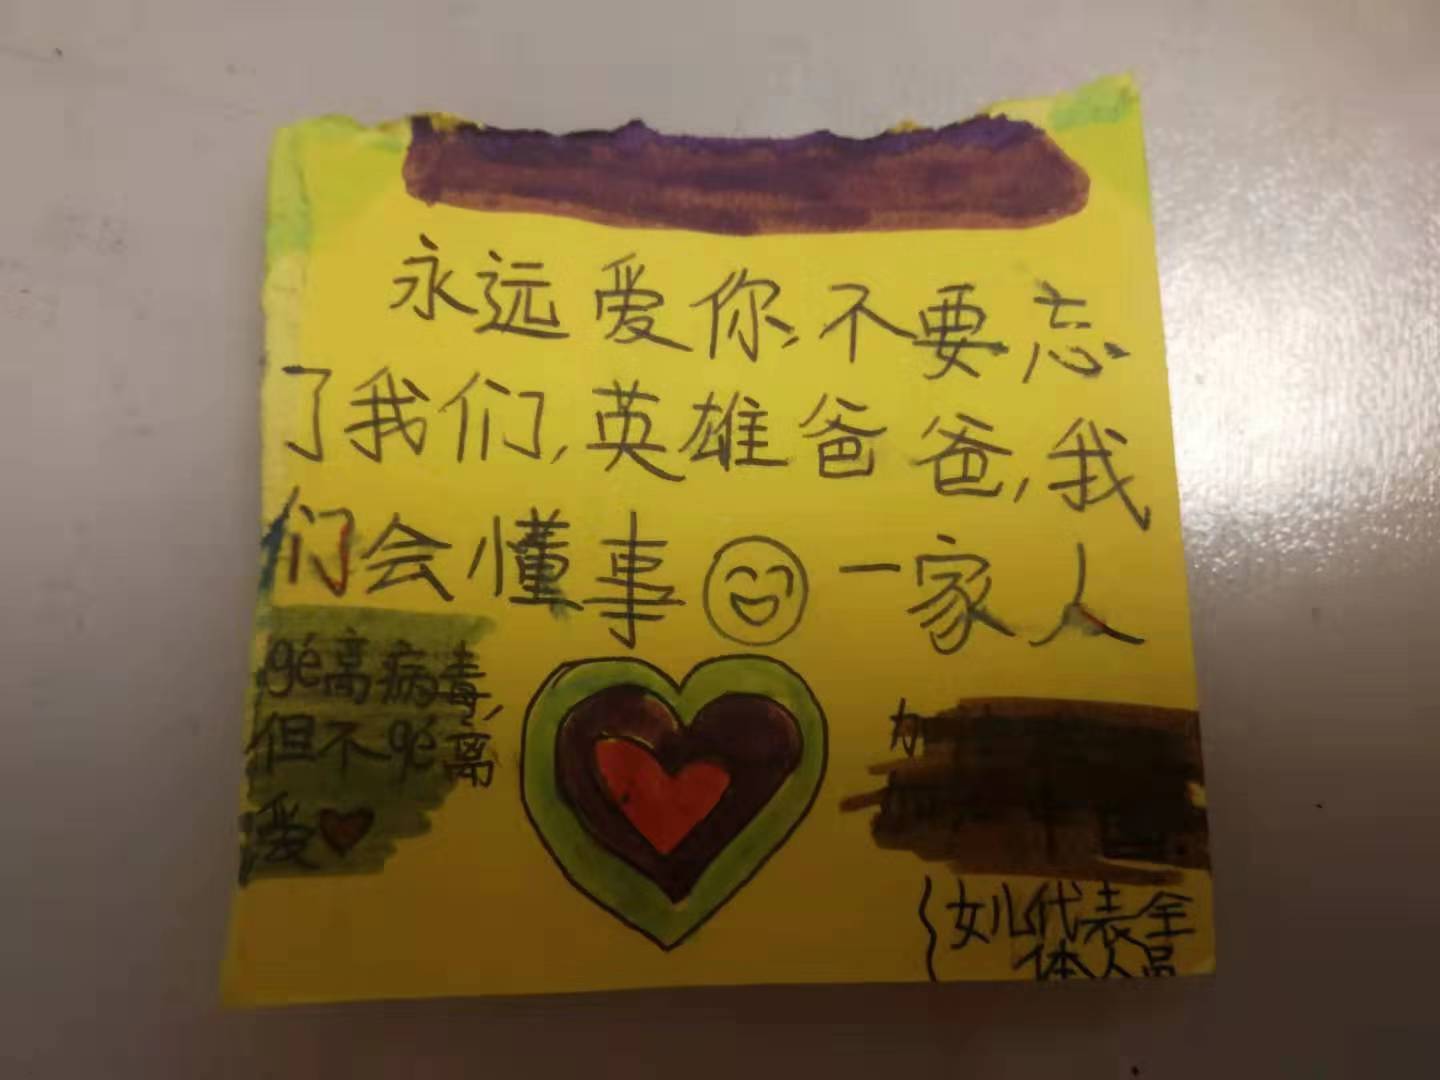 永远爱你,不要忘
了我们,英雄爸爸,我
们会懂事 一家人
gé离病毒,
但不gé离
爱
加
女儿代表全
体人员